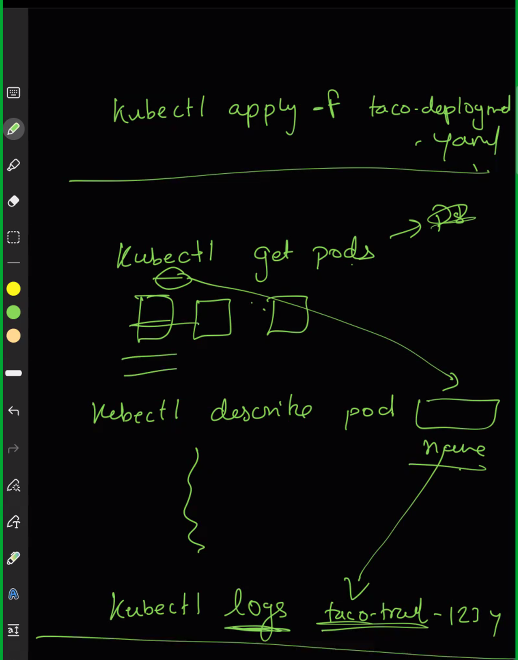 Kubectl apply -f taco-deployment
.yaml
Kubectl get pods
Kubectl describe pod
name
Kubectl logs taco-truck-123y